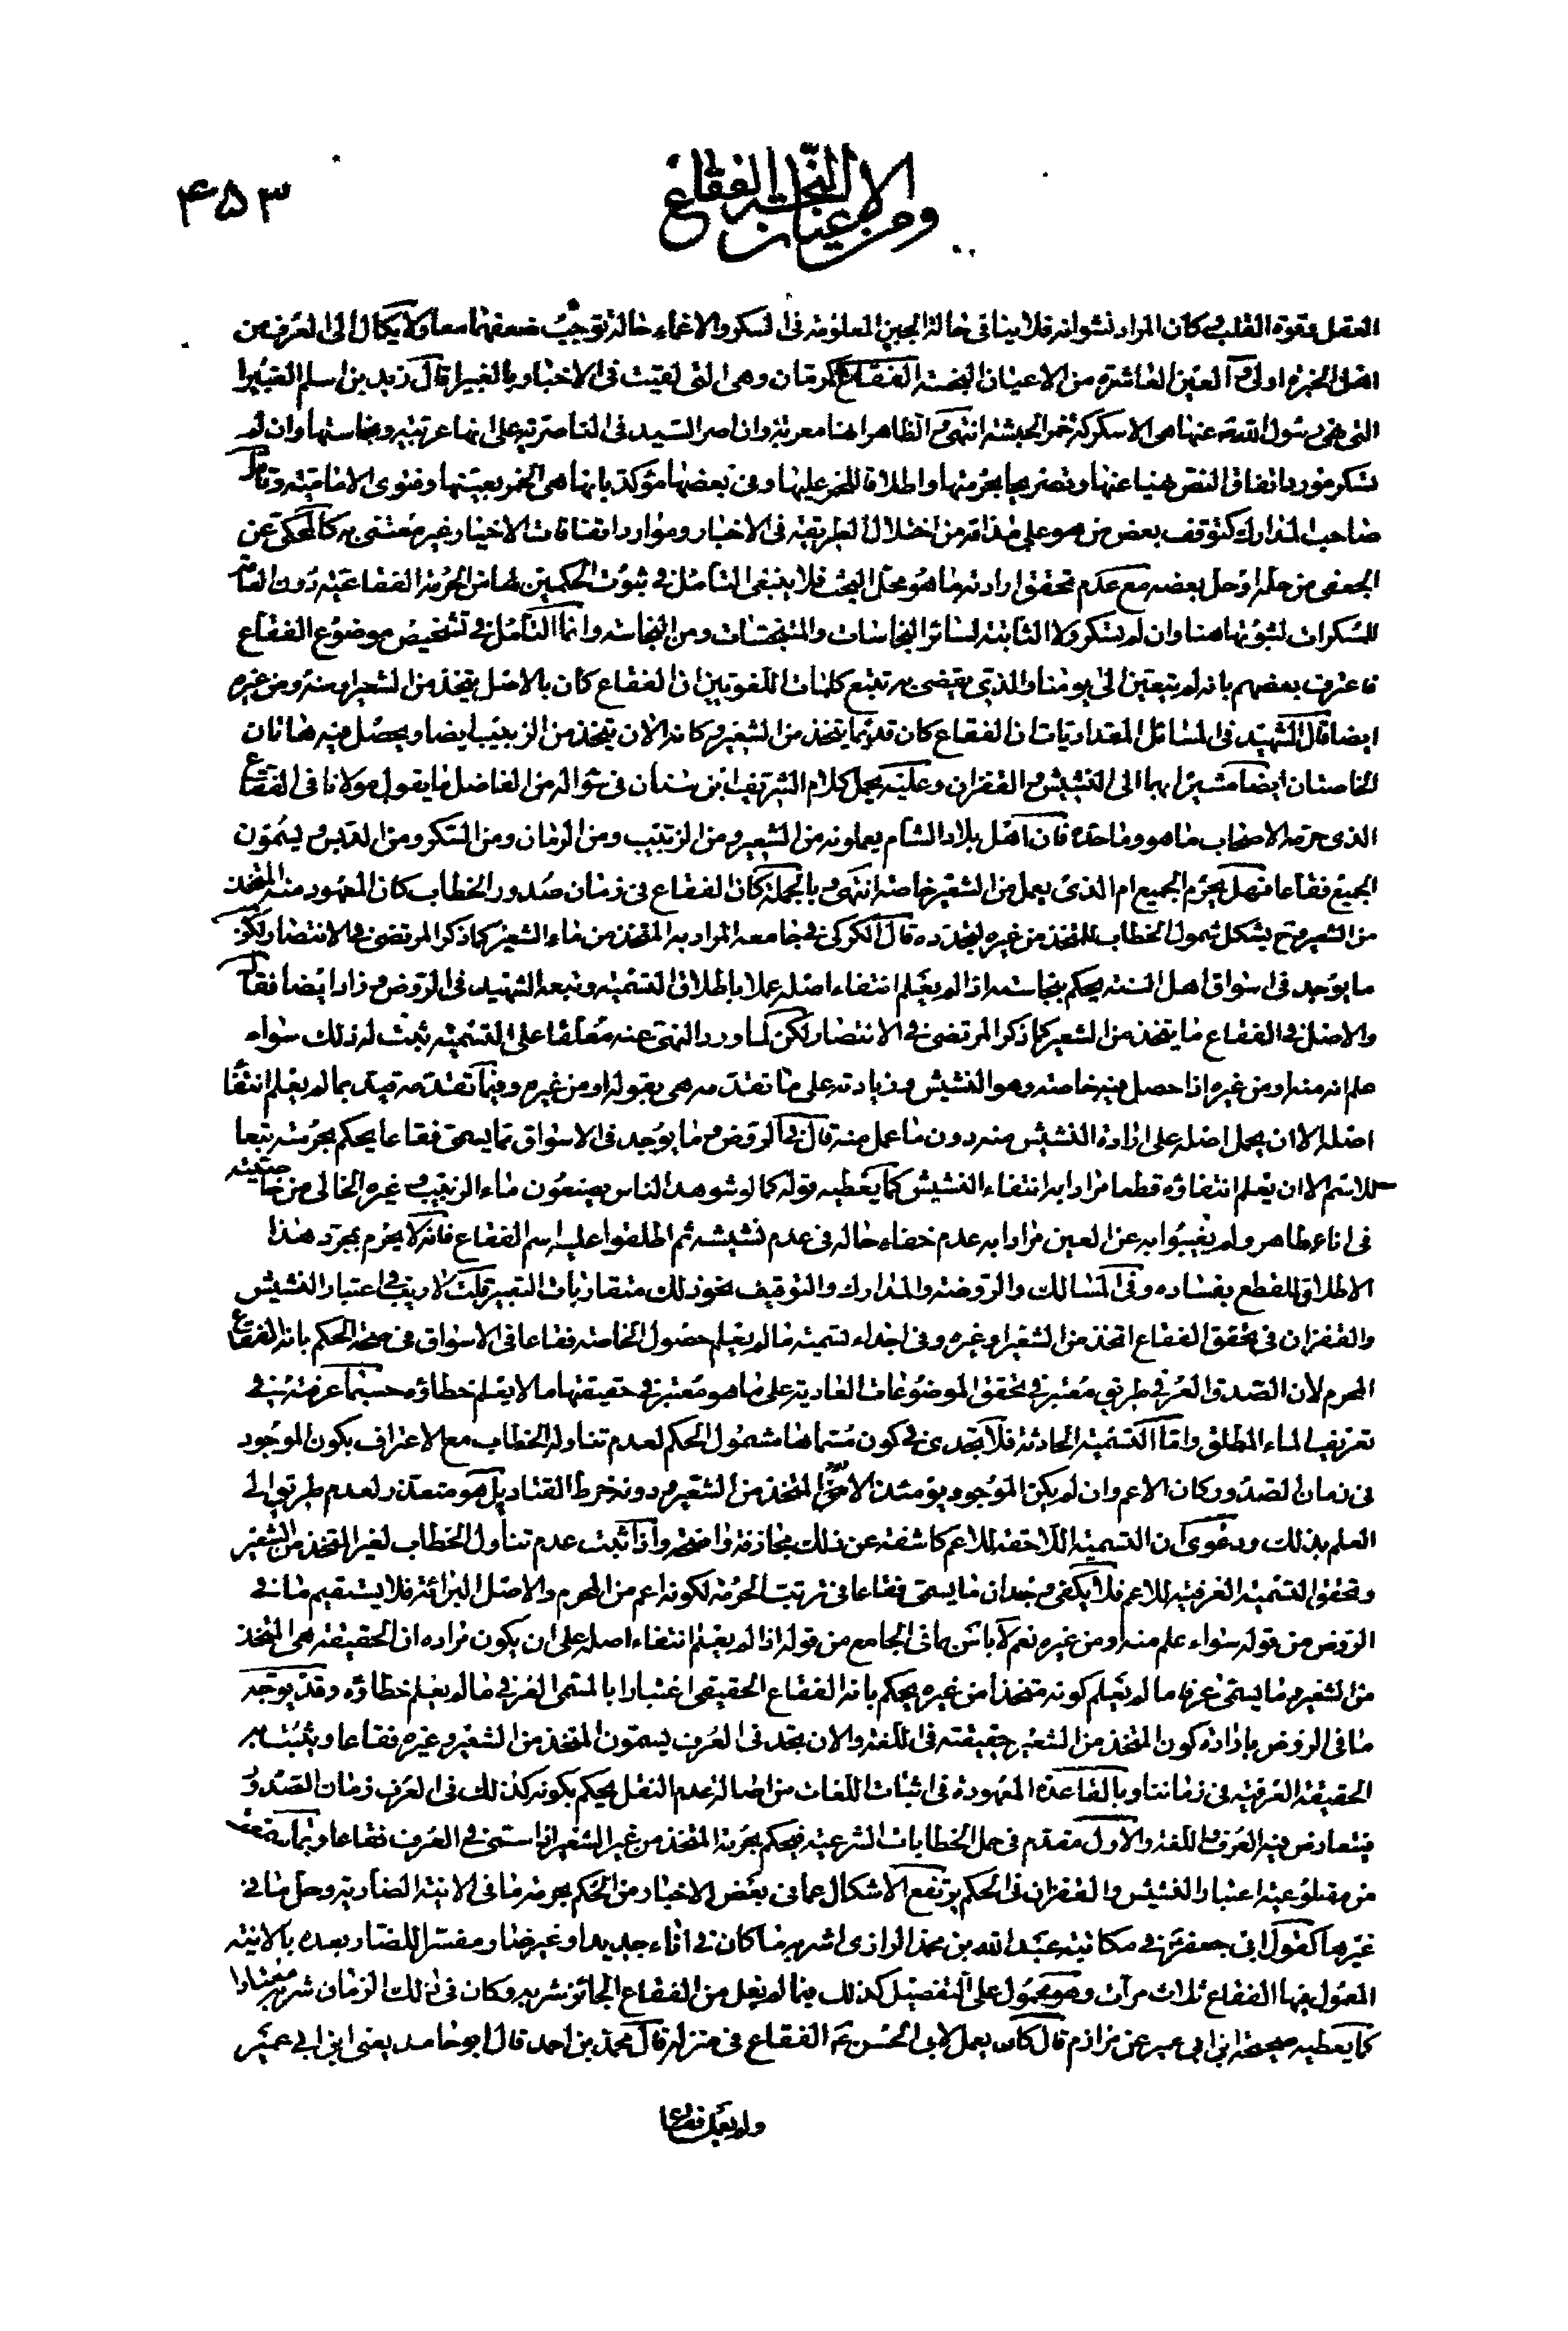 ومن الاعيان النجسة الفقاع
۴۵۳
العقل وقوة القلب كان المراد نشوانه فلا ينافى حالة الجبن المعلومة فى السكر والاغماء حالة توجب ضعفهما معا ولا يكال الى العرف من
اهل الخبرة اولى العين العاشرة من الاعيان النجسة الفقاع كرمان وهى التى لقيت فى الاخبار بالغبيرا قال زيد بن اسلم الغبيرا
التى نهى رسول الله عنها هى الاسكركة خمر الحبشة انتهى الظاهر انها معربة وان اصر السيد فى الناصرية على انها عربية ونجاستها وان لم
يسكر مورد اتفاق النص هنيا عنها وتصريحا بحرمتها واطلاقا للخمر عليها وفى بعضها مؤكدة بانها هى الخمر بعينها وفتوى الامامية وتامل
صاحب المدارك كتوقف بعض من هو على مذاقه من اختلال الطريقة فى الاخبار وموارد اتفاقات الاخيار غير معتنى به كالمحكى عن
الجعفى من حله او حل بعضه مع عدم تحقق ارادته ما هو محل البحث فلا ينبغى التامل فى ثبوت الحكمين لها من الحرمة الفقاعية دون العامة
للمسكرات لثبوتها هنا وان لم يسكر ولا الثابتة لسائر النجاسات والمتنجسات ومن النجاسة وانما التامل فى تشخيص موضوع الفقاع
فاعترف بعضهم بانه لم يتعين الى يومنا والذى يقتضى به تتبع كلمات اللغويين ان الفقاع كان بالاصل يتخذ من الشعير او منه ومن غيره
ايضا قال الشهيد فى المسائل المقداديات ان الفقاع كان قديما يتخذ من الشعير وكانه الان يتخذ من الزبيب ايضا ويحصل فيه هاتان
الخاصتان ايضا مشيرا بهما الى النشيش والقفزان وعليه يحمل كلام الشريف ابن سنان فى سؤاله من الفاضل ما يقول مولانا فى الفقاع
الذى حرمه الاصحاب ما هو وما حده فان اهل بلاد الشام يعملونه من الشعير ومن الزبيب ومن الرمان ومن السكر ومن الدبس ويسمون
الجميع فقاعا فهل يحرم الجميع ام الذى يعمل من الشعير خاصة انتهى وبالجملة كان الفقاع فى زمان صدور الخطاب كان المعهود منه المتخذ
من الشعير وح يشكل شمول الخطاب للمتخذ من غيره لتجدده قال الكركى فى جامعه المراد به المتخذ من ماء الشعير كما ذكر المرتضى فى الانتصار لكن
ما يوجد فى اسواق اهل السنة يحكم بنجاسته اذا لم يعلم انتفاء اصله عملا باطلاق التسمية وتبعه الشهيد فى الروض وزاد ايضا فقال
والاصل فى الفقاع ما يتخذ من الشعير كما ذكر المرتضى فى الانتصار لكن لما ورد النهى عنه معلقا على التسمية ثبت له ذلك سواء
علم انه منه او من غيره اذا حصل فيه خاصته وهو النشيش وزيادته على ما تقدمه هى بقوله او من غيره وفيما تقدمه قيد بما لم يعلم انتفاء
اصله الا ان يحمل اصله على ارادة النشيش منه دون ما عمل منه قال فى الروض وما يوجد فى الاسواق مما يسمى فقاعا يحكم بحرمته تبعا
للاسم الا ان يعلم انتفاؤه قطعا مرادا به انتفاء النشيش كما يعطيه قوله كما لو شوهد الناس يصنعون ماء الزبيب وغيره الخالى من خاصيته
فى اناء طاهر ولم يغيبوا به عن العين مرادا به عدم خفاء حاله فى عدم نشيشه ثم اطلقوا عليه اسم الفقاع فانه لا يحرم بمجرد هذا
الاطلاق للقطع بفساده وفى المسالك والروضة والمدارك والتوقيف نحو ذلك متقاربات التعبير قلت لا ريب فى اعتبار النشيش
والقفزان فى تحقق الفقاع اتخذ من الشعير او غيره وفى اجداء تسمية ما لم يعلم حصول الخاصة فقاعا فى الاسواق فى صحة الحكم بانه الفقاع
المحرم لان الصدق العرفى طريق معتبر فى تحقق الموضوعات العادية على ما هو معتبر فى حقيقتها ما لا يعلم خطاؤه حسبما عرفته فى
تعريف الماء المطلق واما التسمية الحادثة فلا تجدى فى كون مسماها مشمول الحكم لعدم تناوله الخطاب مع الاعتراف بكون الموجود
فى زمان الصدور كان الاعم وان لم يكن الموجود يومئذ الا المتخذ من الشعير ودونه خرط القتاد بل هو متعذر لعدم طريق الى
العلم بذلك ودعوى ان التسمية اللاحقة للاعم كاشفة عن ذلك مجازفة واضحة واذا ثبت عدم تناول الخطاب لغير المتخذ من الشعير
وتحقق التسمية العرفية للاعم فلا يكفى وجدان ما يسمى فقاعا فى ترتيب الحرمة لكونه اعم من المحرم والاصل البرائة فلا يستقيم ما فى
الروض من قوله سواء علم منه او من غيره نعم لا باس بما فى الجامع من قوله اذا لم يعلم انتفاء اصله على ان يكون مراده ان الحقيقة هى المتخذ
من الشعير وما يسمى عرفا ما لم يعلم كونه متخذا من غيره يحكم بانه الفقاع الحقيقى اعتبارا بالمسمى العرفى ما لم يعلم خطاؤه وقد يوجه
ما فى الروض بارادة كون المتخذ من الشعير حقيقته فى اللغة والان نجد فى العرف يسمون المتخذ من الشعير وغيره فقاعا ويثبت به
الحقيقة العرفية فى زماننا وبالقاعدة المعهودة فى اثبات اللغات من اصالة عدم النقل يحكم بكونه كذلك فى العرف زمان الصدور
فيتعارض فيه العرف واللغة والاول مقدم فى حمل الخطابات الشرعية فيحكم بحرمة المتخذ من غير الشعير اذا استمى فى العرف فقاعا وبما
من اعتبار النشيش والقفزان فى الحكم يرتفع الاشكال عما فى بعض الاخبار من الحكم بحرمة ما فى الانية الضارية وحل ما فى
غيرها كقول ابى جعفر فى مكاتبة عبد الله بن محمد الرازى اشربه ما كان فى اناء جديد او غير ضار ومفسرا للضار بعده بالانية
المعمول فيها الفقاع ثلاث مرات وهو محمول على التفصيل كذلك فيما لم يغل من الفقاع الجائز شربه وكان فى ذلك الزمان شربه معتادا
كما يعطيه صحيحة ابن ابى عمير عن مرازم قال كان يعمل لابى الحسن ع الفقاع فى منزله قال محمد بن احمد قال ابو حامد يعنى ابن ابى عمير
ولم يعمل فقاعا